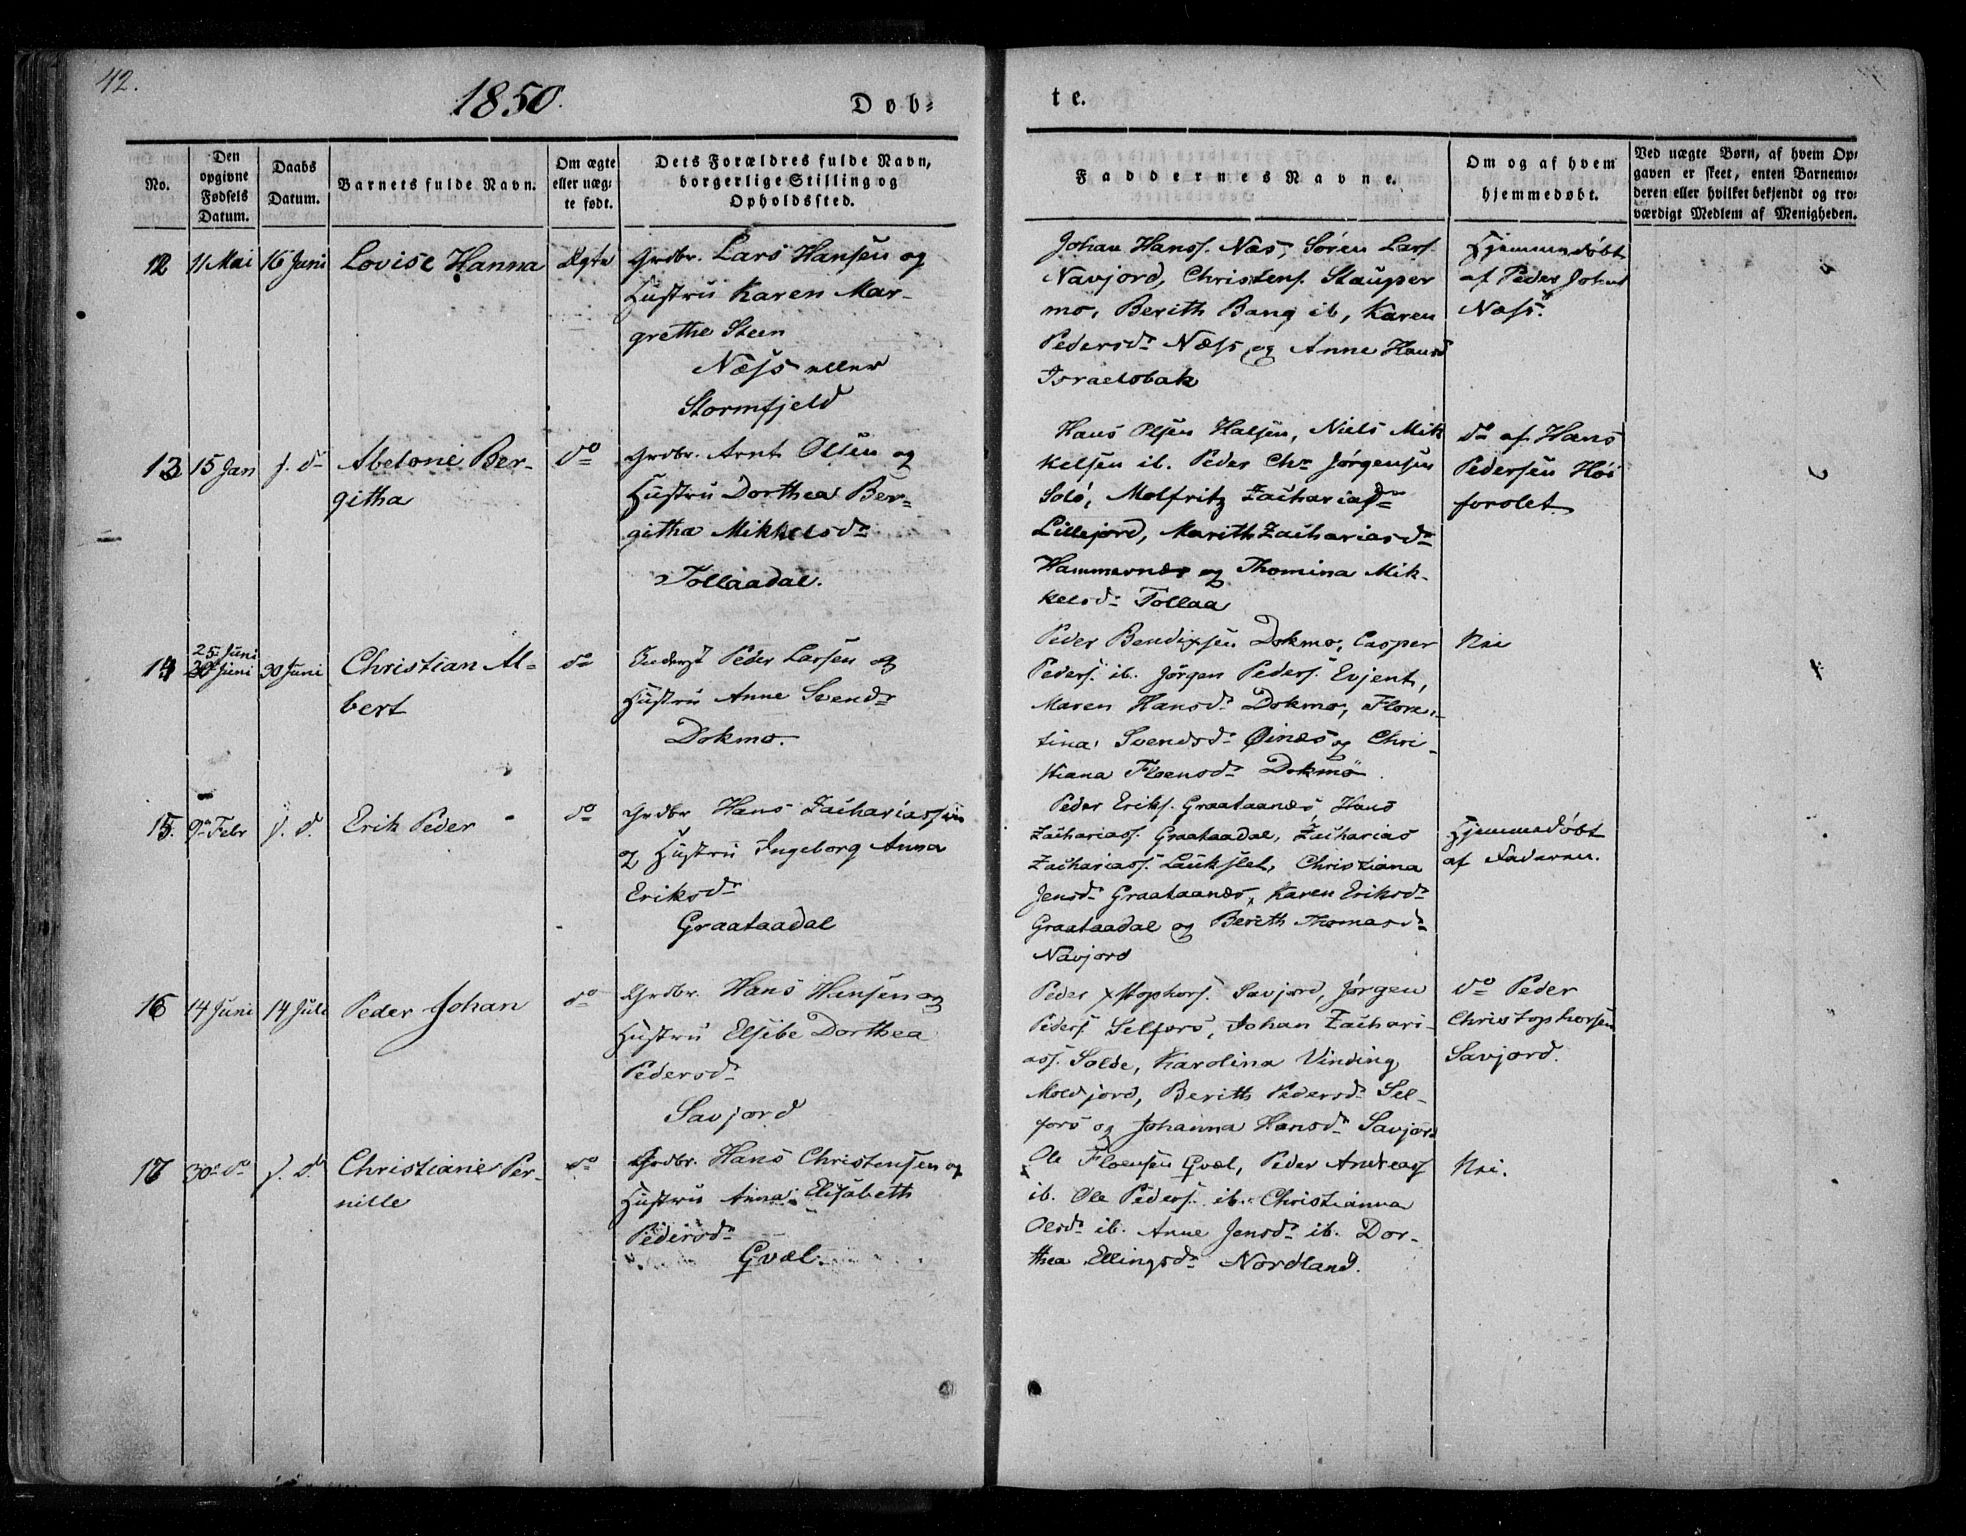 42.
1850.
Døb-
te.
No.
Den opgivne Fødsels Datum.
Daabs Datum.
Barnets fulde Navn.
Om ægte eller uæg-te født.
Dets Forældres fulde Navn, borgerlige Stilling og Opholdssted.
Faddernes Navne.
Om og af hvem hjemmedøbt.
Ved uægte Børn, af hvem Op-
gaven er skeet, enten Barnemo-
deren eller hvilket bekjendt og tro-
værdigt Medlem af Menigheden.
12 11 Mai 16 Juni Lovise Hanna Ægte
Grdbr. Lars Hansen og
Hustru Karen Mar-
grethe Steen
Næss eller
Stormfjeld
Johan Hanss. Næs, Søren Lars.
Navjord, Christens. Stauper
mo, Berith Bang ib, Karen
Pedersdr Næss og Anne Hansd
Israelsbak
Hjemmedøbt
af Peder Johns
Næss.
13 15 Jan s. d. Abelone Ber-
githa
do
Grdbr. Arnt Olsen og
Hustru Dorthea Ber-
githa Mikkelsdr
Tollaadal.
Hans Olsen Halsen, Niels Mik
kelsen ib. Peder Chr Jørgensen
Solö, Melfritz Zachariasdr
Lillejord, Marith Zachariasdr
Hammernæs og Thomina Mik-
kelsdr Tollaa
do af Hans
Pedersen Høi
forslet
14 25 Juni 30 Juni Christian Al-
bert
do
Inderst Peder Larsen og
Hustru Anne Svendr
Dokmo.
Peder Bendixsen Dokmo, Casper
Peders. ib. Jørgen Peders. Evjent,
Maren Hansdr Dokmo, Floren-
tina Svendsdr Øinæs og Chri-
stiana Floensdr Dokmo.
Nei
15. 9 Febr s. d. Erik Peder
do
Grdbr Hans Zachariassen
og Hustru Ingeborg Anna
Eriksdr
Graataadal
Peder Eriks. Graataanæs, Hans
Zachariass. Graataadal, Zacharias
Zachariass. Laukslet, Christiana
Jensdr Graataanæs, Karen Eriksdr
Graataadal og Berith Thomasdr
Navjord
Hjemmedøbt
af Faderen.
16 14 Juni 14 Juli Peder Johan
do
Grdbr. Hans Hansen og
Hustru Elsibe Dorthea
Pedersdr
Savjord
Peder Xstophors. Savjord, Jørgen
Peders. Selfors, Johan Zachari-
ass. Solde, Karolina Vinding
Moldjord, Berith Pedersdr Sel-
fors og Johanna Hansdr Savjord
do Peder
Christophersen
Savjord.
17 30 do s. d. Christiane Per-
nille
do
Grdbr. Hans Christensen og
Hustru Anna Elisabeth
Pedersdr
Qvæl.
Ole Floensen Qvæl, Peder Andreass
ib. Ole Peders. ib. Christianna
Olsdr ib. Anne Jensdr ib. Dor-
thea Ellingsdr Nordland.
Nei.